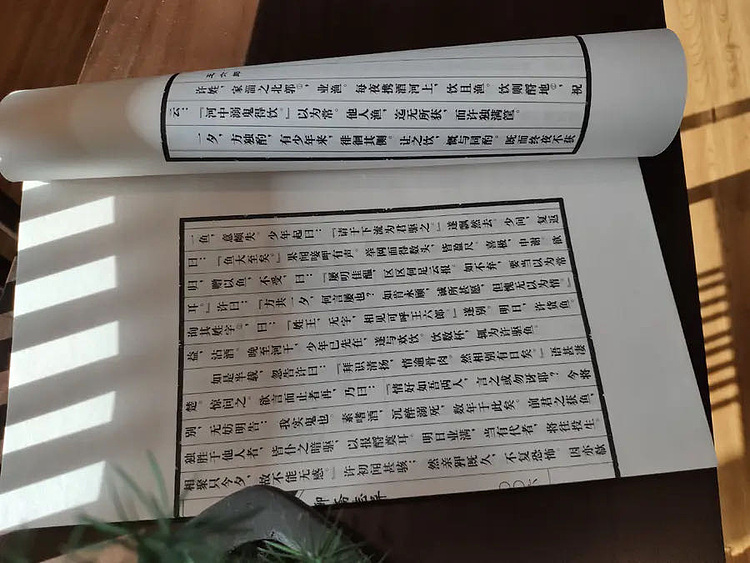 王六郎
许姓，家淄之北郭，业渔。每夜携酒河上，饮且渔。饮则酹地，祝
云：『河中溺鬼得饮。』以为常。他人渔，迄无所获，而许独满筐。
一夕，方独酌，有少年来，徘徊其侧。让之饮，慨与同酌。既而终夜不获
一鱼，意颇失。少年起曰：『请于下流为君驱之。』遂飘然去。少间，复返
曰：『鱼大至矣。』果闻唼呷有声。举网而得数头，皆盈尺。喜极，申谢。欲
归，赠以鱼，不受，曰：『屡叨佳醖，区区何足云报。如不弃，要当以为常
耳。』许曰：『方共一夕，何言屡也？如肯永顾，诚所甚愿，但愧无以为情。』
询其姓字，曰：『姓王，无字，相见可呼王六郎。』遂别。明日，许货鱼
益，沽酒。晚至河干，少年已先在，遂与欢饮。饮数杯，辄为许驱鱼。
如是半载，忽告许曰：『拜识清扬，情逾骨肉。然相别有日矣。』语甚凄
楚。惊问之，欲言而止者再，乃曰：『情好如吾两人，言之或勿讶耶？今将
别，无妨明告：我实鬼也。素嗜酒，沉醉溺死，数年于此矣。前君之获鱼，
独胜于他人者，皆仆之暗驱，以报酹奠耳。明日业满，当有代者，将往投生。
相聚只今夕，故不能无感。』许初闻甚骇；然亲狎既久，不复恐怖。因亦欷
聊斋志异
〇〇六